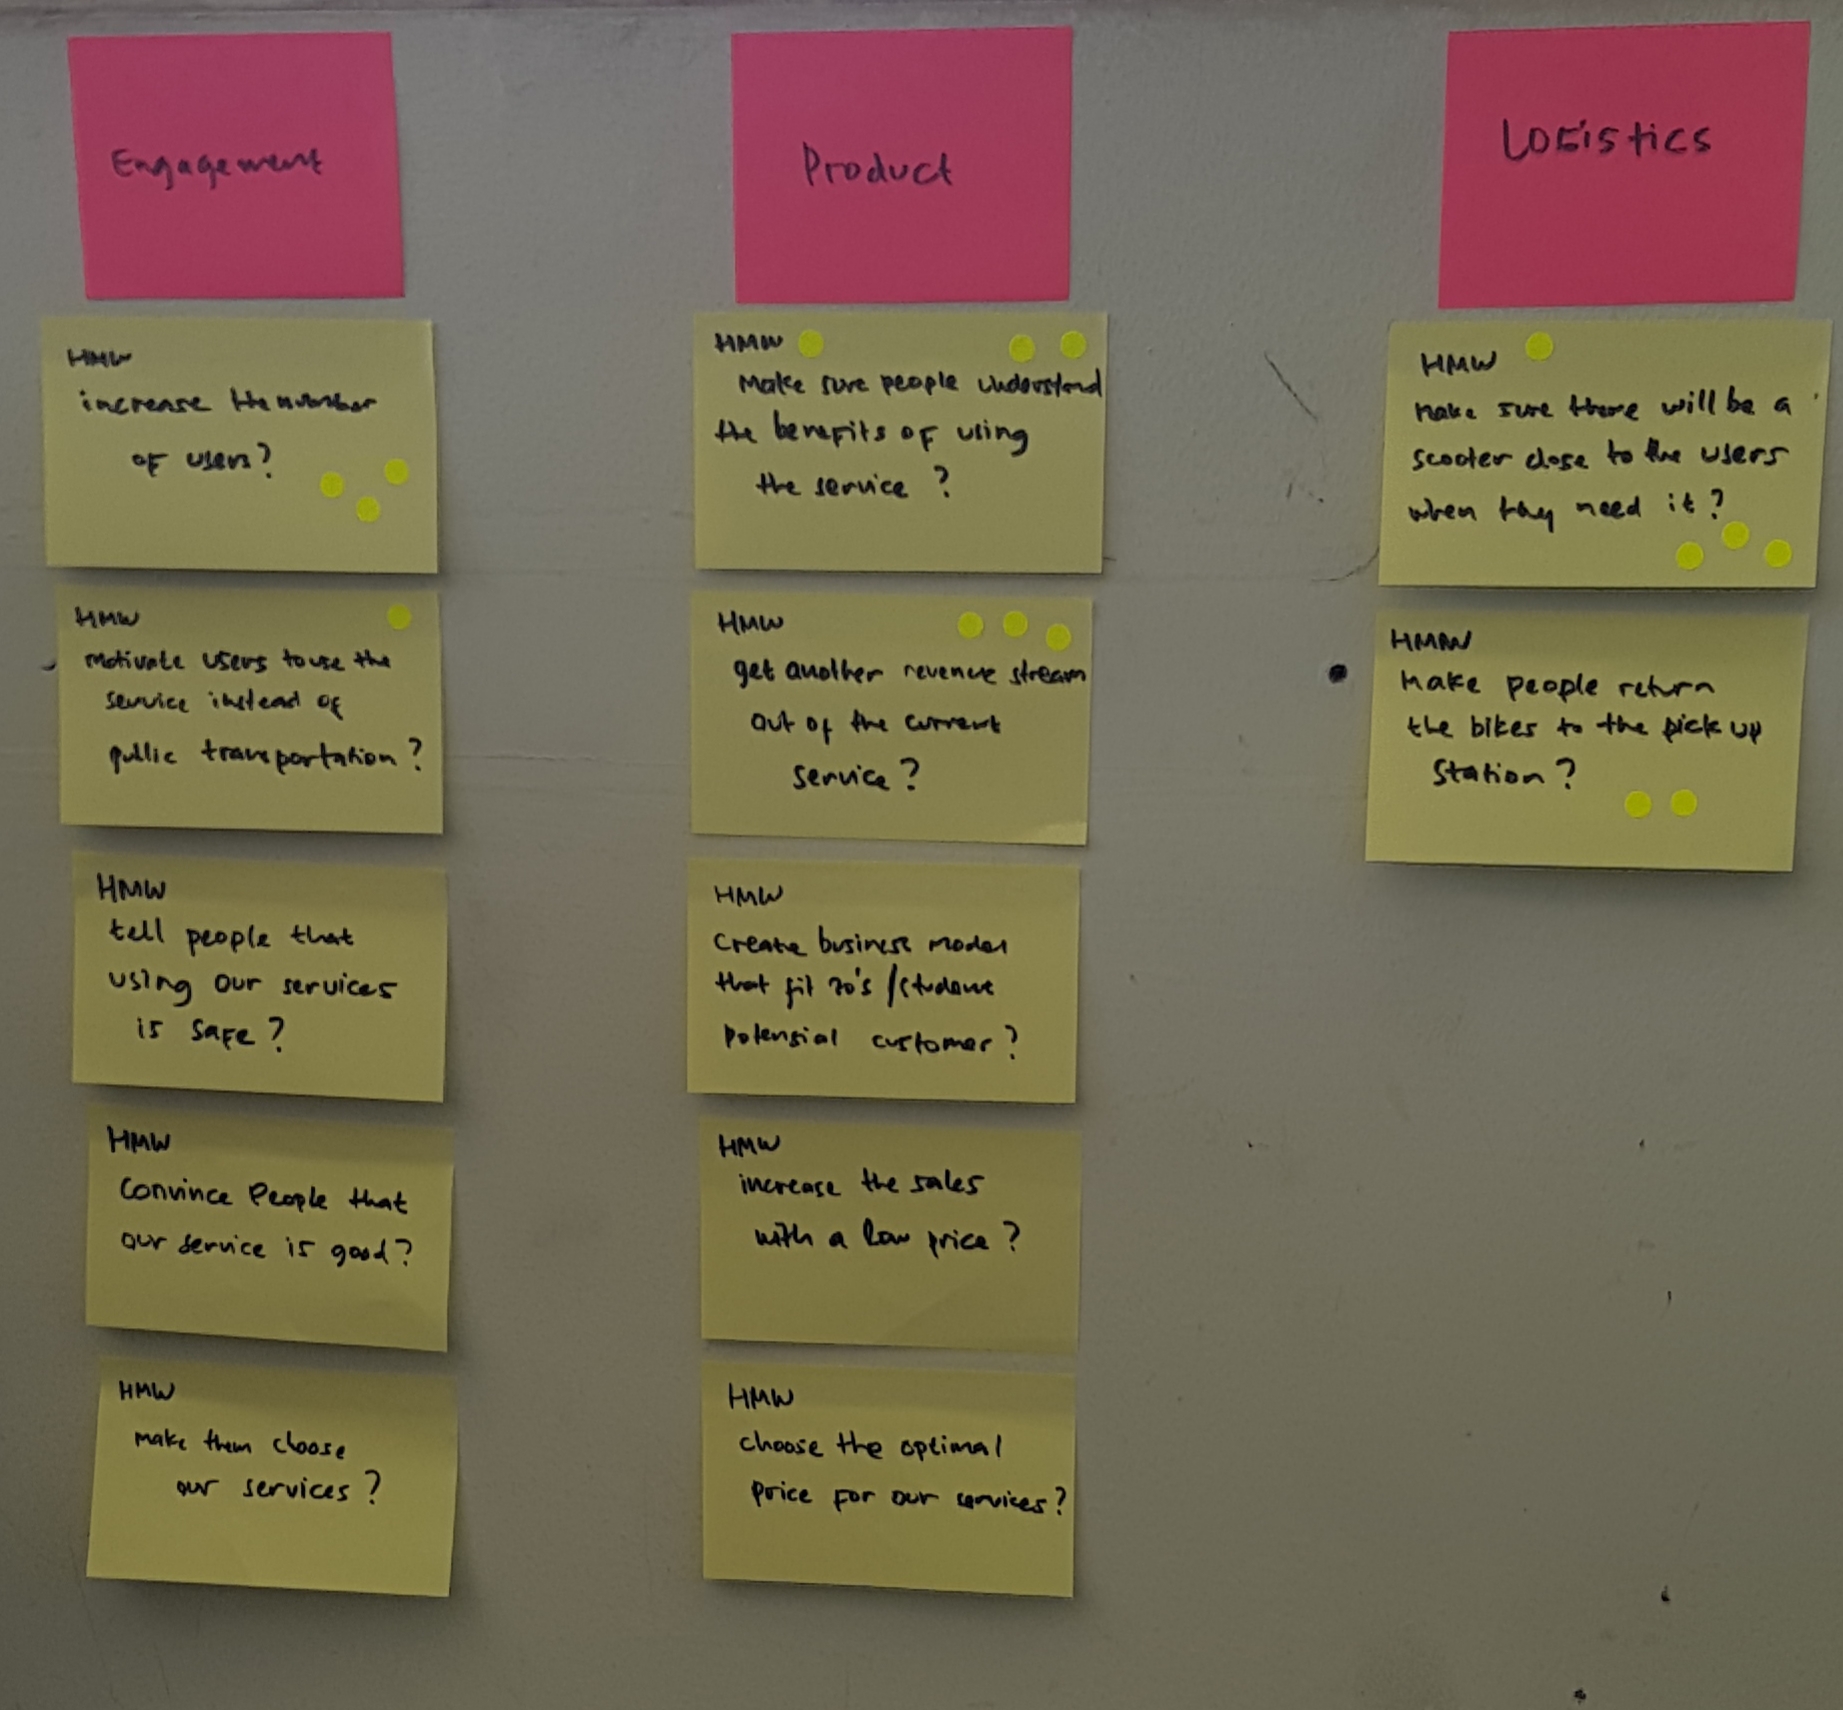 Engagement
HMW
increase the number
of users?
HMW
motivate users to use the
service instead of
public transportation?
HMW
tell people that
using our services
is safe?
HMW
Convince People that
our service is good?
HMW
make them choose
our services?
Product
HMW
Make sure people understand
the benefits of using
the service?
HMW
get another revenue stream
out of the current
service?
HMW
create business model
that fit 20's/student
potensial customer?
HMW
increase the sales
with a low price?
HMW
choose the optimal
price for our services?
LOGistics
HMW
make sure there will be a
scooter close to the users
when they need it?
HMW
Make people return
the bikes to the pick up
Station?